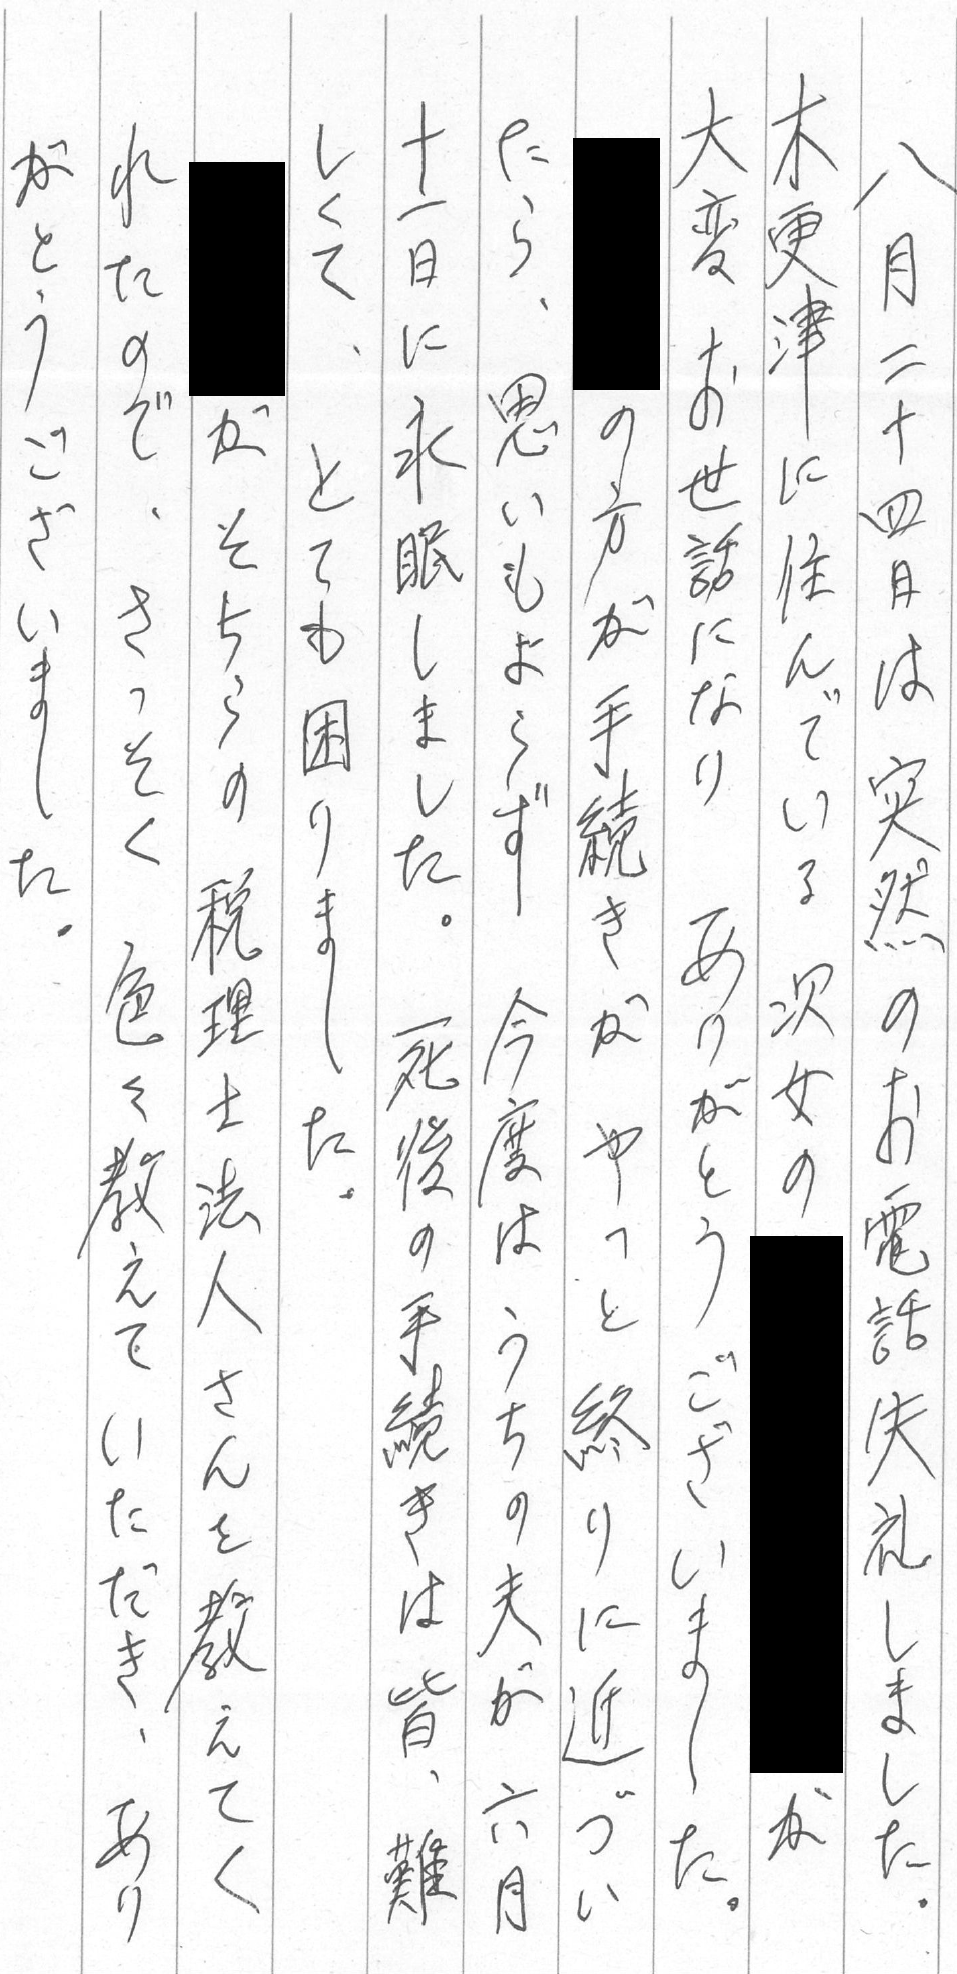 八月二十四日は突然のお電話失礼しました。
木更津に住んでいる次女の が
大変お世話になりありがとうございました。
の方が手続きがやっと終りに近づい
たら、思いもよらず今度はうちの夫が六月
十一日に永眠しました。死後の手続きは皆、難
しくて、とても困りました。
がそちらの税理士法人さんを教えてく
れたので、さっそく色々教えていただき、あり
がとうございました。